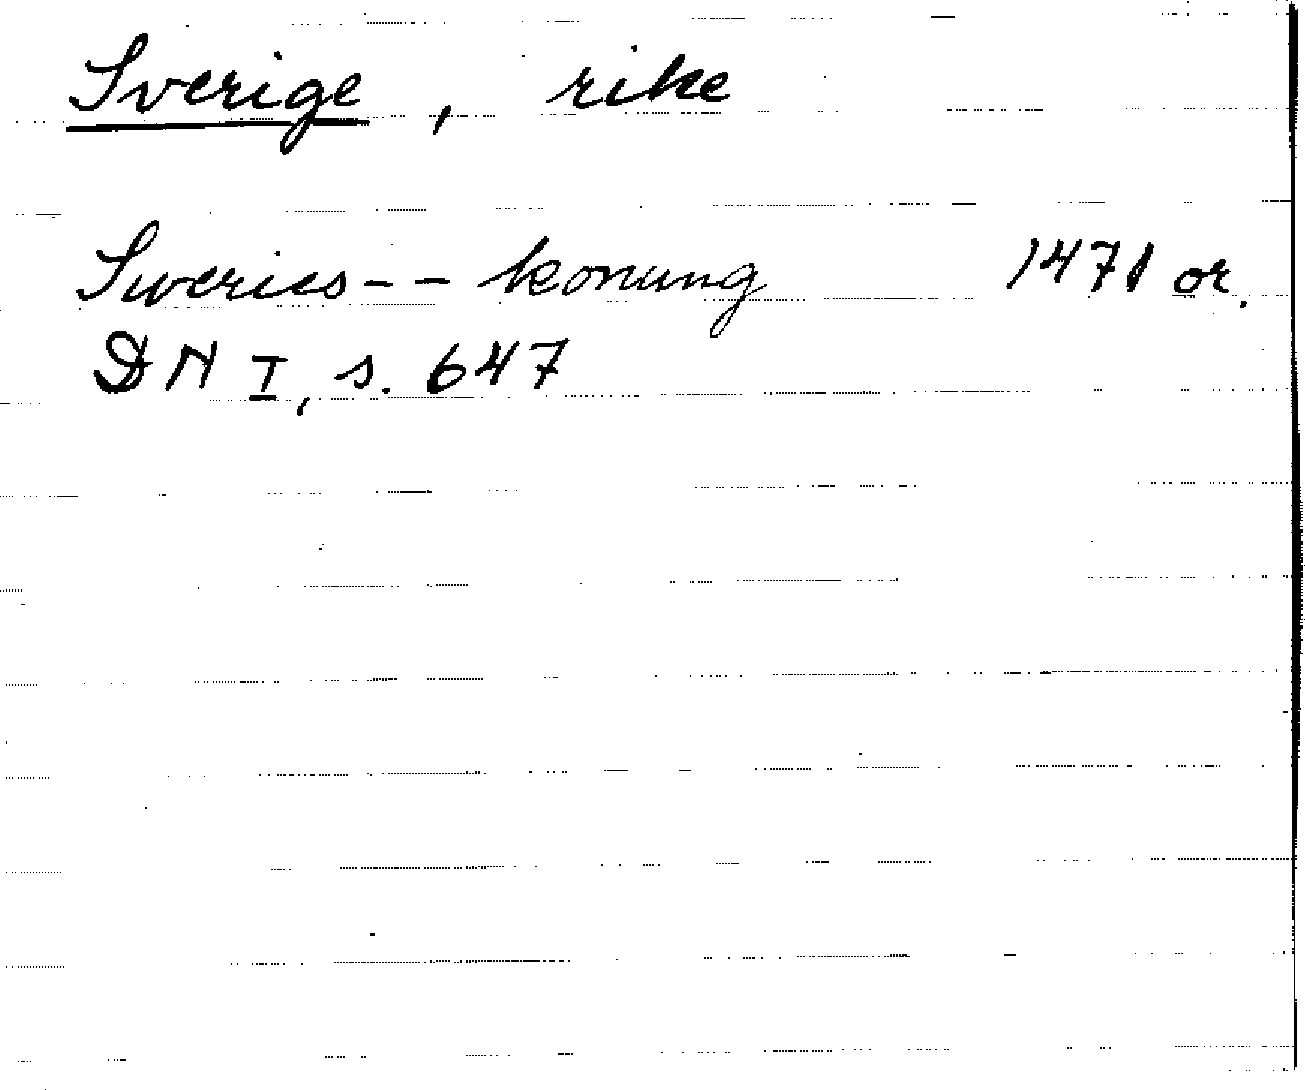 Sverige, rike
Swerics - - konung 1471 or.
DN I, s. 647